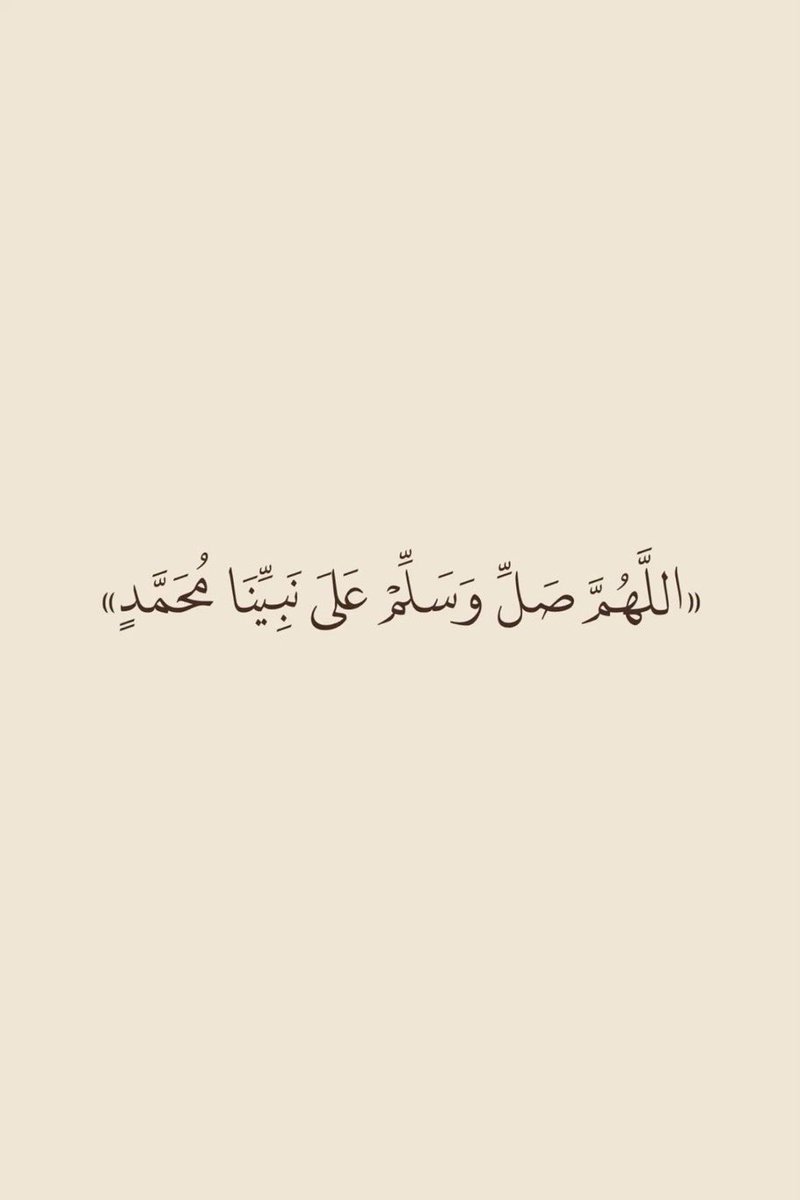 «اللَّهُمَّ صَلِّ وَسَلِّمْ عَلَىٰ نَبِيِّنَا مُحَمَّدٍ»